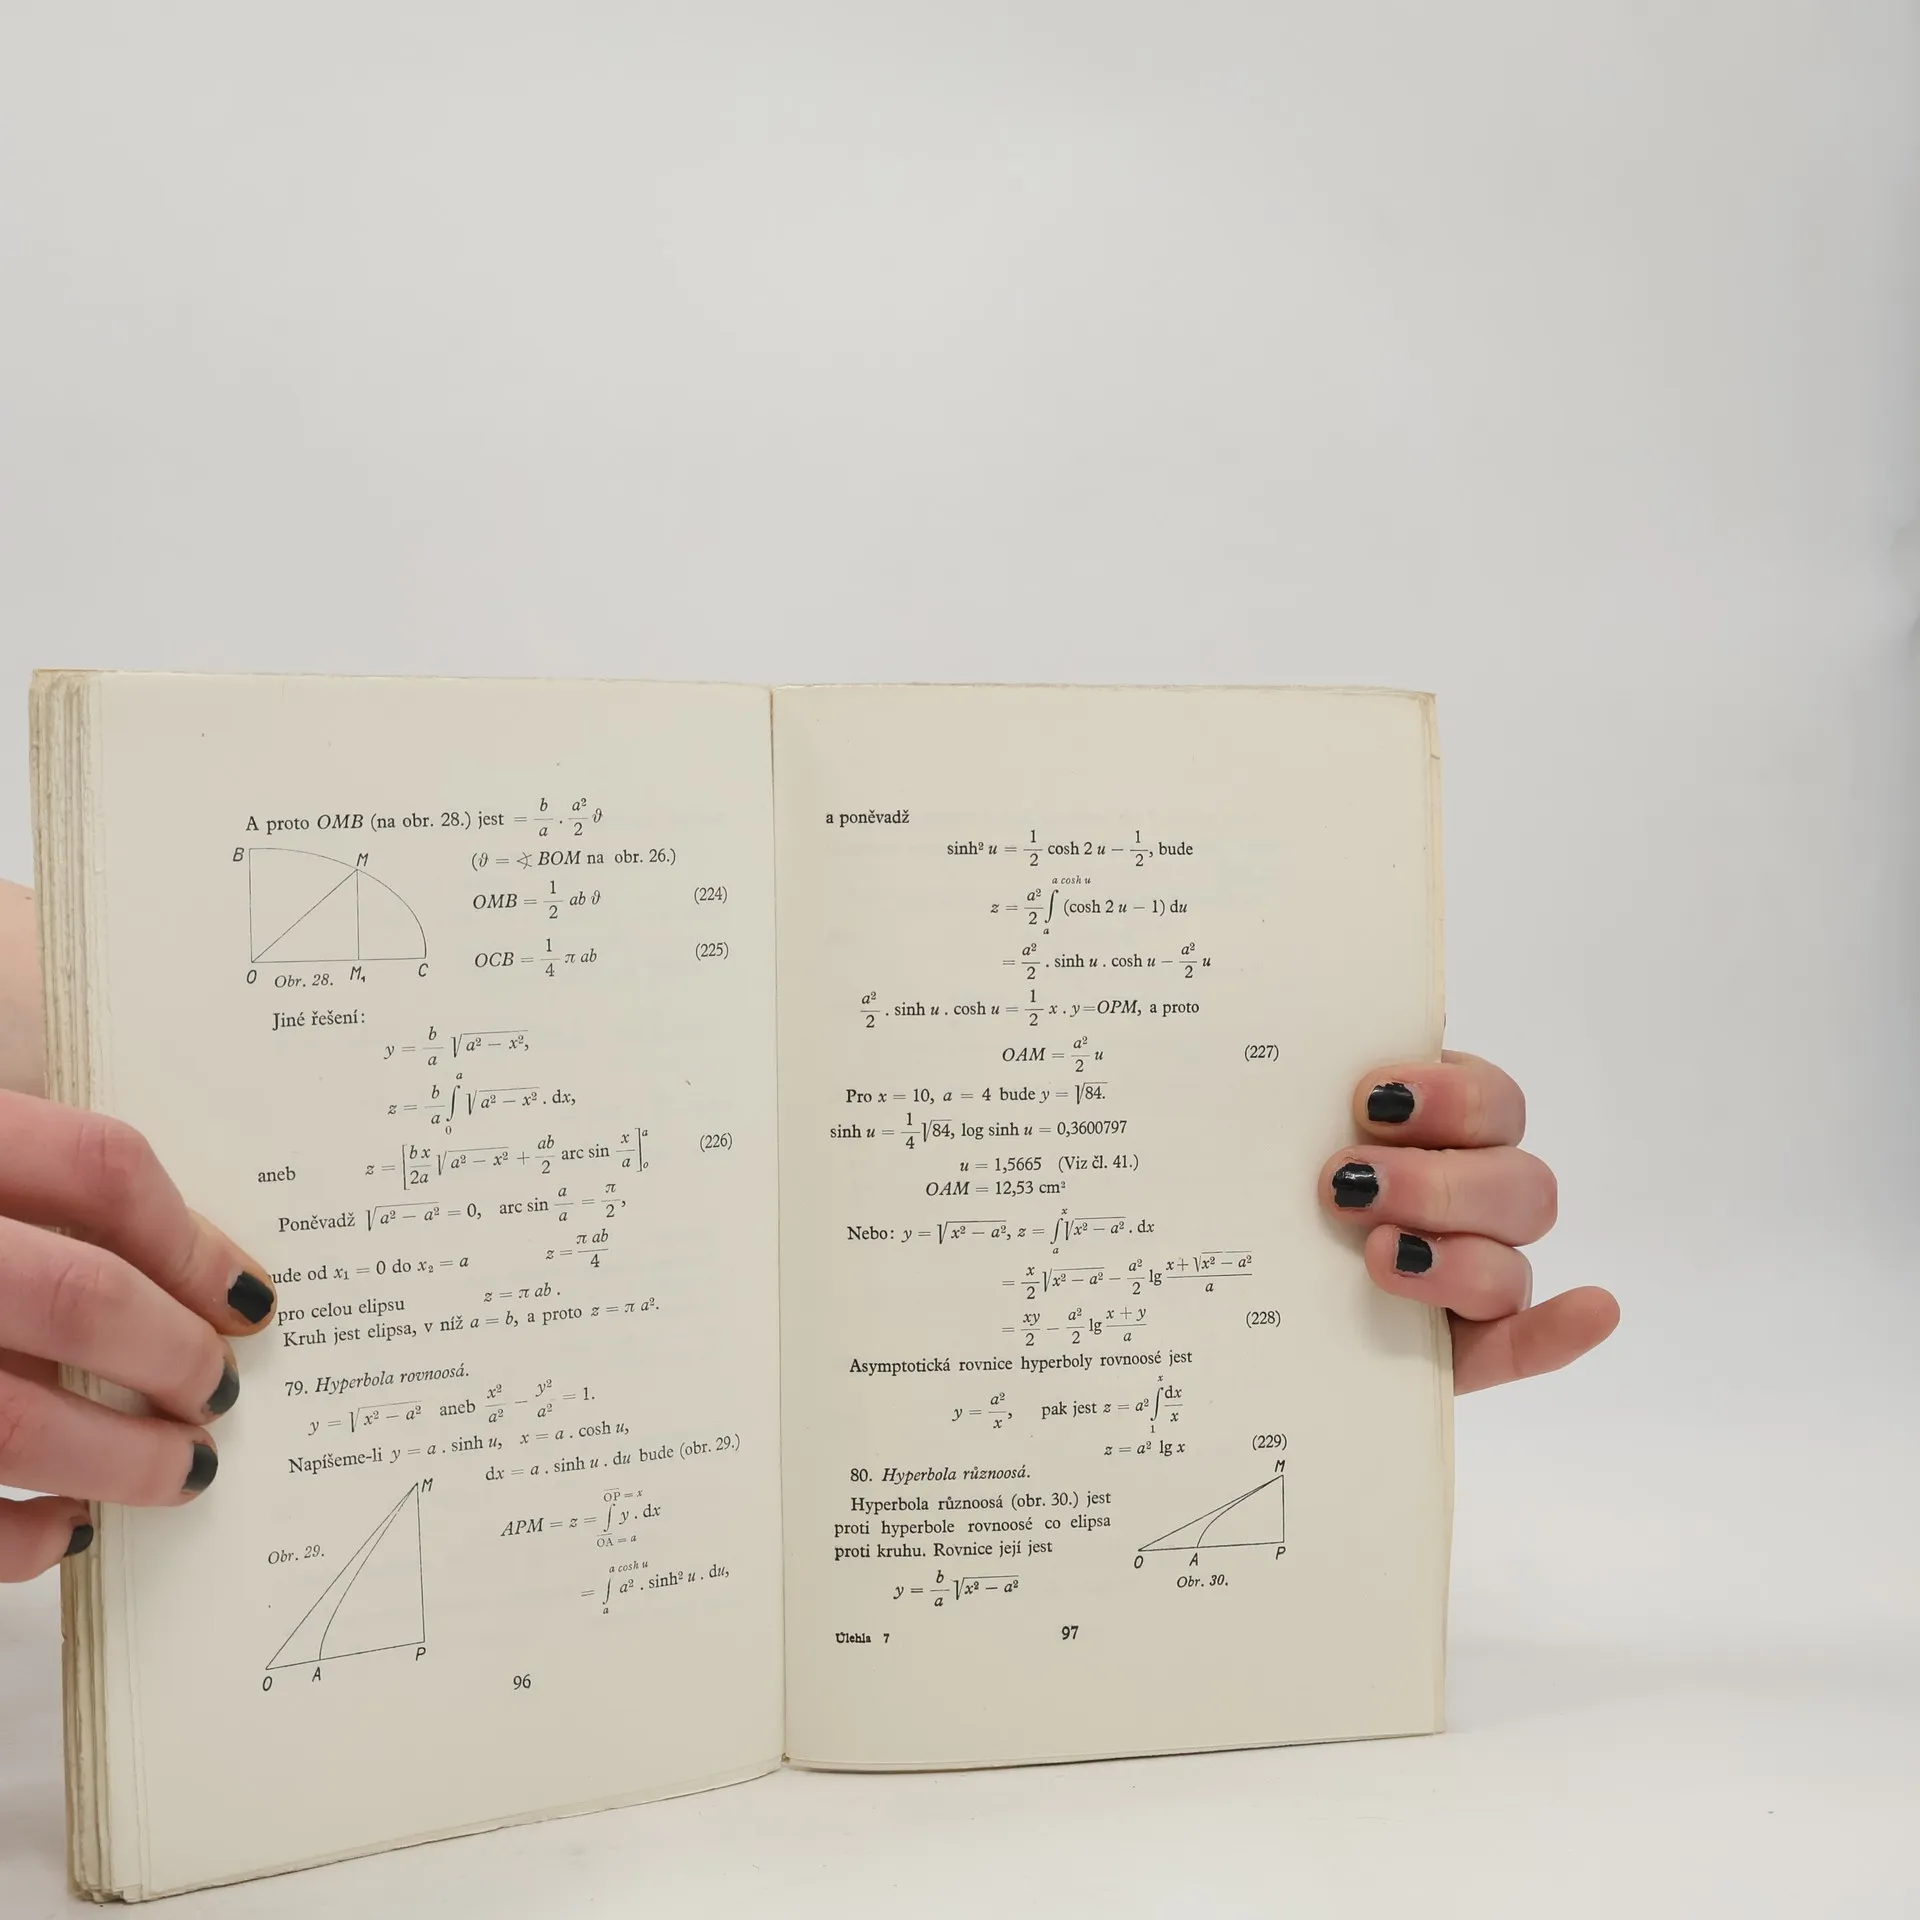 A proto OMB (na obr. 28.) jest = b/a . a²/2 ϑ
B M
(ϑ = ∢ BOM na obr. 26.)
OMB = 1/2 ab ϑ (224)
OCB = 1/4 π ab (225)
O Obr. 28. M₁ C
Jiné řešení:
y = b/a √(a² − x²),
z = b/a ∫₀ᵃ √(a² − x²) . dx,
aneb z = [bx/2a √(a² − x²) + ab/2 arc sin x/a]₀ᵃ (226)
Poněvadž √(a² − a²) = 0, arc sin a/a = π/2,
ude od x₁ = 0 do x₂ = a z = π ab/4
pro celou elipsu z = π ab .
Kruh jest elipsa, v níž a = b, a proto z = π a².
79. Hyperbola rovnoosá.
y = √(x² − a²) aneb x²/a² − y²/a² = 1.
Napíšeme-li y = a . sinh u, x = a . cosh u,
dx = a . sinh u . du bude (obr. 29.)
M
APM = z = ∫ y . dx (OP = x, OA = a)
Obr. 29.
= ∫ a² . sinh² u . du, (a cosh u, a)
O A P
96
a poněvadž
sinh² u = 1/2 cosh 2 u − 1/2, bude
z = a²/2 ∫ (cosh 2 u − 1) du (a cosh u, a)
= a²/2 . sinh u . cosh u − a²/2 u
a²/2 . sinh u . cosh u = 1/2 x . y=OPM, a proto
OAM = a²/2 u (227)
Pro x = 10, a = 4 bude y = √84.
sinh u = 1/4 √84, log sinh u = 0,3600797
u = 1,5665 (Viz čl. 41.)
OAM = 12,53 cm²
Nebo: y = √(x² − a²), z = ∫ₐˣ √(x² − a²) . dx
= x/2 √(x² − a²) − a²/2 lg (x + √(x² − a²))/a
= xy/2 − a²/2 lg (x + y)/a (228)
Asymptotická rovnice hyperboly rovnoosé jest
y = a²/x, pak jest z = a² ∫₁ˣ dx/x
z = a² lg x (229)
80. Hyperbola různoosá.
Hyperbola různoosá (obr. 30.) jest
proti hyperbole rovnoosé co elipsa
proti kruhu. Rovnice její jest
y = b/a √(x² − a²)
M
O A P
Obr. 30.
Úlehla 7
97